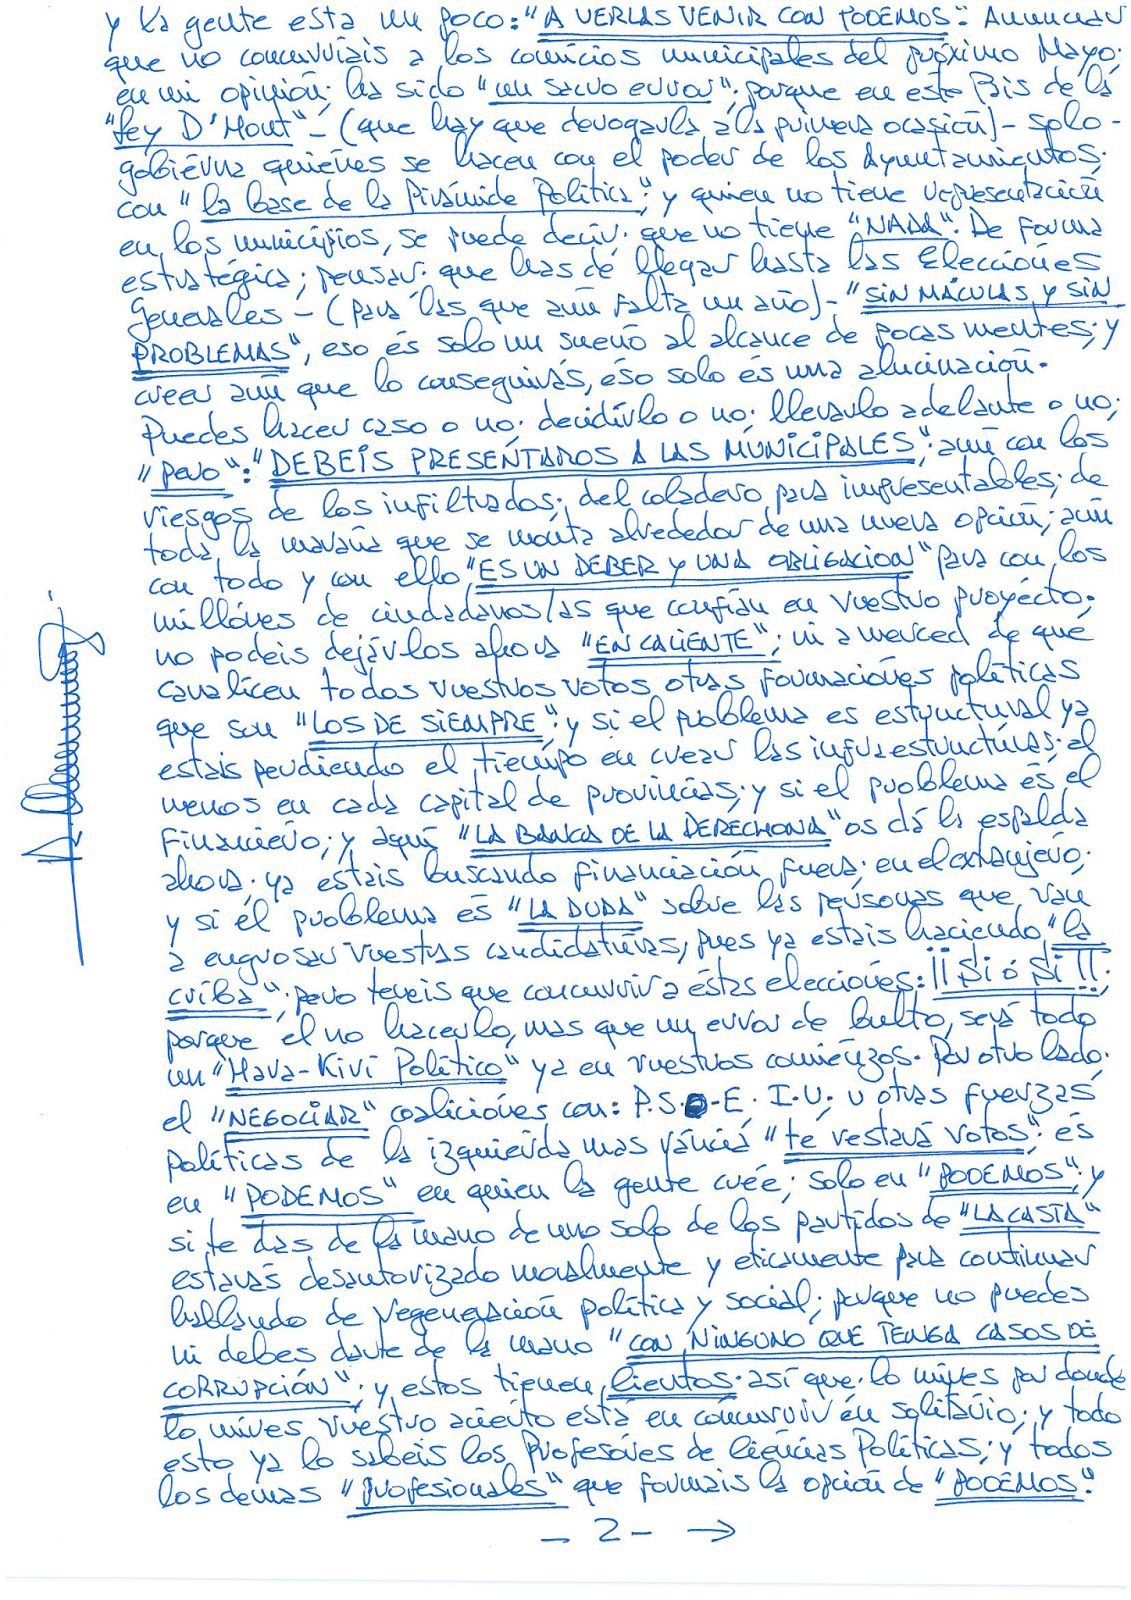 y la gente esta un poco: "A VERLAS VENIR CON PODEMOS". Anunciar
que no concurriais a los comicios municipales del próximo Mayo;
en mi opinión; ha sido "un serio error"; porque en este País de la
"Ley D'Hont" - (que hay que derogarla a la primera ocasión) - solo -
gobiérna quiénes se hacen con el poder de los Ayuntamientos;
con "la base de la Pirámide Política"; y quien no tiene representación
en los municipios, se puede decir. que no tiene "NADA". De forma
estratégica; pensar. que has de llegar hasta las Elecciónes
Generales - (para las que aún falta un año) - "SIN MÁCULAS Y SIN
PROBLEMAS", eso és solo un sueño al alcance de pocas mentes; y
creer aún que lo conseguirás, eso solo es una alucinación.
Puedes hacer caso o no; decidírlo o no; llevarlo adelante o no;
"pero": "DEBEÍS PRESENTAROS A LAS MÚNICIPALES"; aún con los
riesgos de los infiltrados; del coladero para impresentables; de
toda la maraña que se monta alrededor de una nueva opción; aún
con todo y con ello "ES UN DEBER Y UNA OBLIGACION" para con los
millónes de ciudadanos/as que confían en vuestro proyécto;
no podeis dejárlos ahora "EN CALIENTE"; ni a merced de que
canalicen todos vuestros votos otras formaciónes políticas
que son "LOS DE SIEMPRE"; y si el problema es estructural ya
estais perdiendo el tiempo en crear las infraestructuras; al
menos en cada capital de provincias; y si el problema és el
Financiero; y aquí "LA BANCA DE LA DERECHONA" os dá la espalda
ahora; ya estais buscando financiación fuera; en el extranjero;
y si él problema és "LA DUDA" sobre las personas que van
a engrosar vuestras candidaturas, pues ya estais haciendo "la
críba"; pero teneis que concurrir a éstas elecciónes: ¡¡ Sí ó Sí !!;
porque él no hacerlo, mas que un error de bulto, será todo
un "Hara-Kiri Político" ya en vuestros comiénzos. Por otro lado.
el "NEGOCIAR" coaliciónes con: P.S.O.E. I.U. u otras fuerzas
Políticas de la izquierda mas ráncia "té restará votos"; és
en "PODEMOS" en quien la gente crée; solo en "PODEMOS"; y
si te das de la mano de uno solo de los partidos de "LA CASTA"
estarás desautorizado moralmente y eticamente para continuar
hablando de regeneración política y social; porque no puedes
ni debes darte de la mano "CON NINGUNO QUE TENGA CASOS DE
CORRUPCIÓN"; y estos tienen cientos. así que. lo mires por donde
lo mires vuestro aciérto está en concurrir én solitário; y todo
esto ya lo sabeis los Profesóres de Ciéncias Políticas; y todos
los demas "profesionales" que formais la opción de "PODEMOS".
- 2 - →